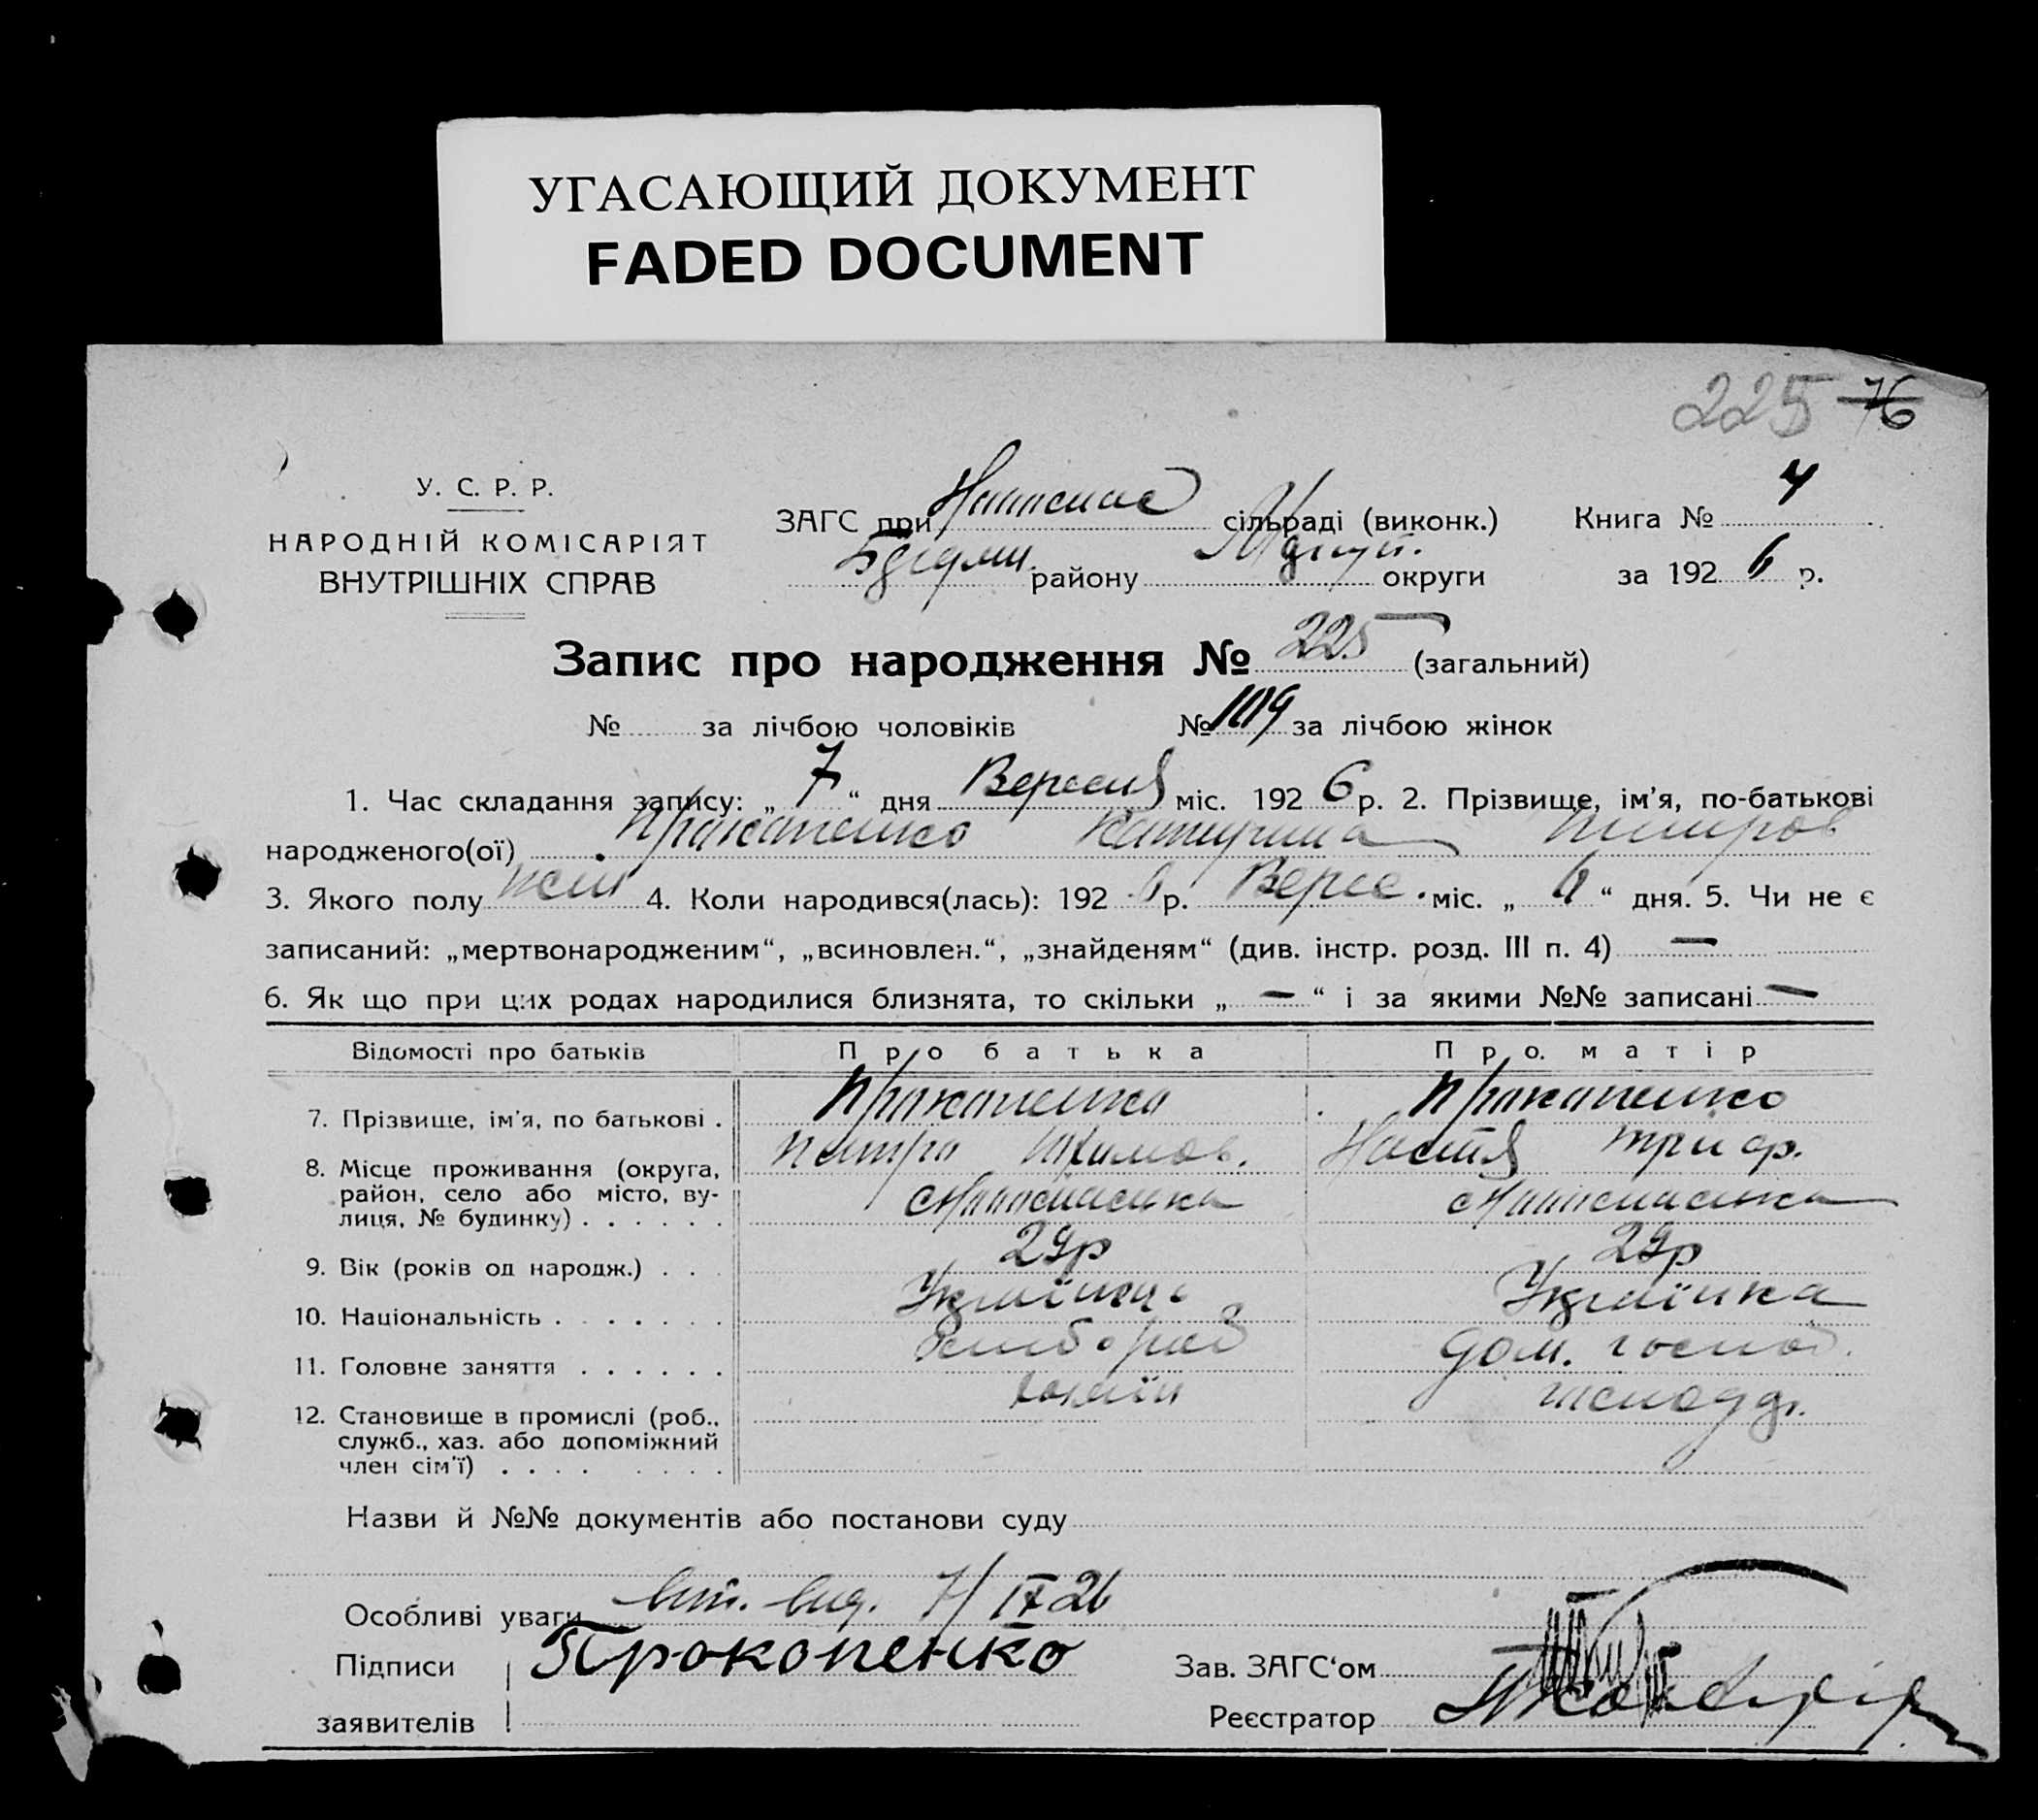 УГАСАЮЩИЙ ДОКУМЕНТ
FADED DOCUMENT
225 76
У. С. Р. Р.
НАРОДНІЙ КОМІСАРІЯТ
ВНУТРІШНІХ СПРАВ
ЗАГС при сільраді (виконк.) Книга № 4
району округи за 1926 р.
Запис про народження № 225 (загальний)
№ за лічбою чоловіків № 109 за лічбою жінок
1. Час складання запису: „ 7 “ дня Вересня міс. 1926 р. 2. Прізвище, ім'я, по-батькові
народженого(ої) Прокопенко Катерина Петров
3. Якого полу жін 4. Коли народився(лась): 1926 р. Верес. міс. „ 6 “ дня. 5. Чи не є
записаний: „мертвонародженим“, „всиновлен.“, „знайденям“ (див. інстр. розд. III п. 4) —
6. Як що при цих родах народилися близнята, то скільки „ — “ і за якими №№ записані —
Відомості про батьків Про батька Про матір
7. Прізвище, ім'я, по батькові . Прокопенко Прокопенко
Петро Юхимов. Настя Триф.
8. Місце проживання (округа,
район, село або місто, ву-
лиця, № будинку) . . . . . .
9. Вік (років од народж.) . . . 29р 29р
10. Національність . . . . . . . Українець Українка
11. Головне заняття . . . . . . хлібороб дом. господ.
12. Становище в промислі (роб.,
служб., хаз. або допоміжний
член сім'ї) . . . . . . . . хазяїн
Назви й №№ документів або постанови суду
Особливі уваги вит. вид. 7/IX 26
Підписи Прокопенко Зав. ЗАГС'ом
заявителів Реєстратор